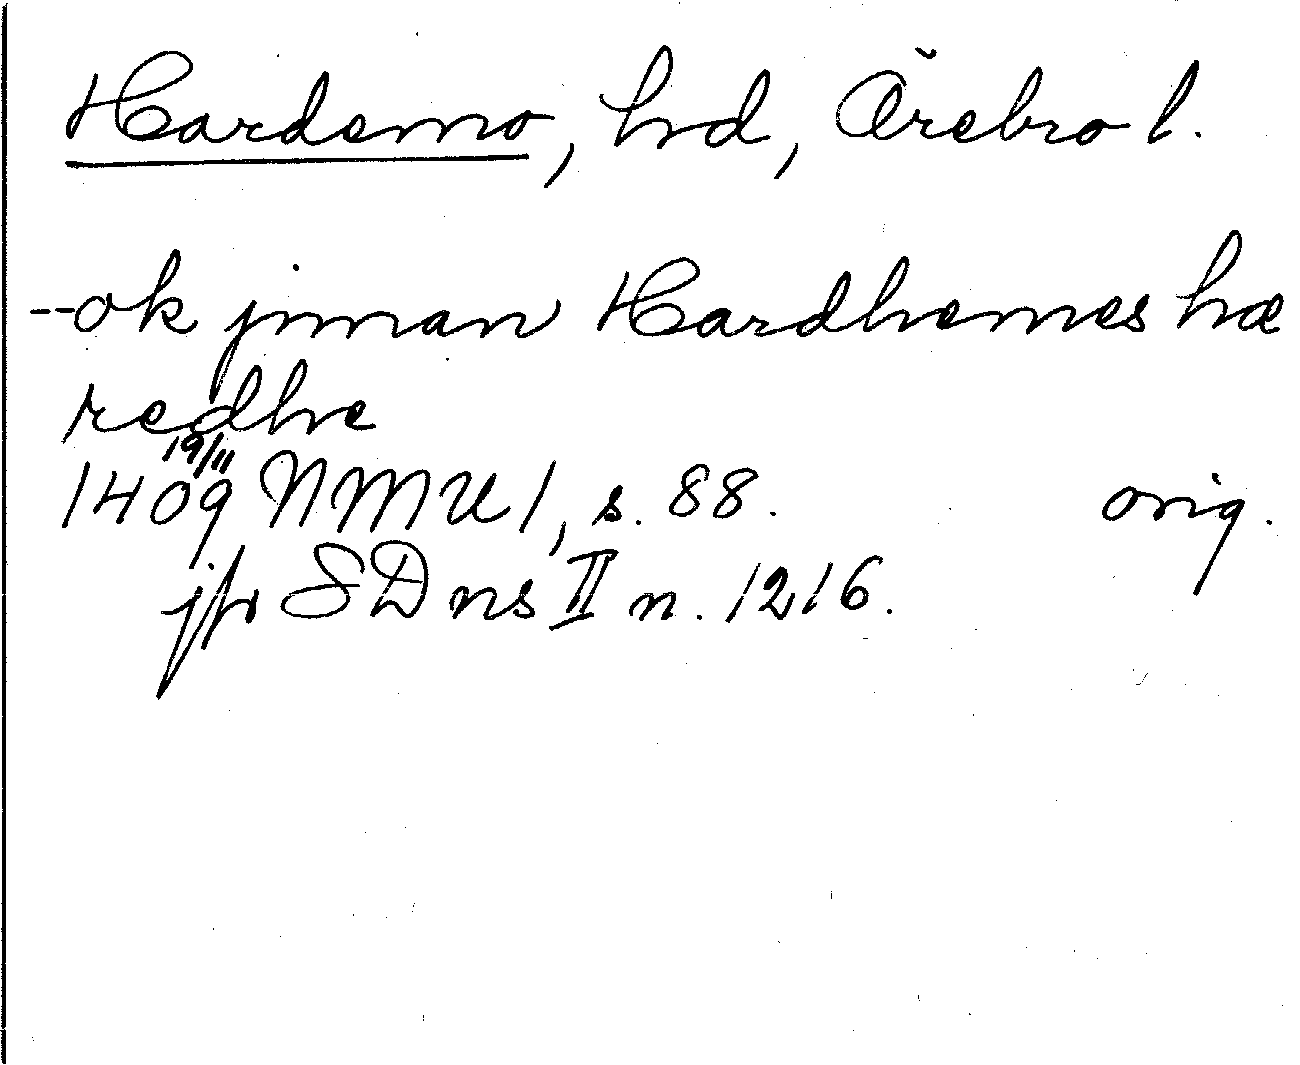 Hardemo, hd, Örebro l.
--ok jnnan Hardhemes hæ
redhe
1409 19/11 NMU 1, s. 88. orig.
jfr SD ns II n. 1216.